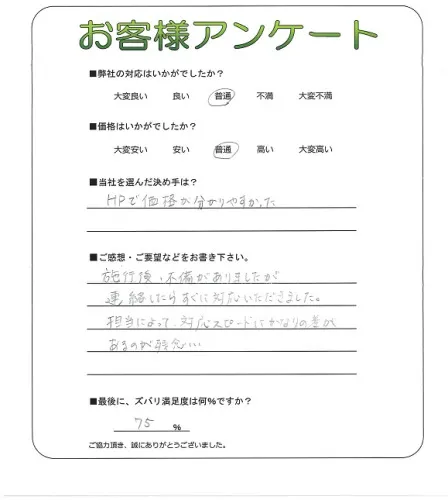 お客様アンケート
■弊社の対応はいかがでしたか?
大変良い 良い 普通 不満 大変不満
■価格はいかがでしたか?
大変安い 安い 普通 高い 大変高い
■当社を選んだ決め手は?
HPで価格が分かりやすかった
■ご感想・ご要望などをお書き下さい。
施行後、不備がありましたが
連絡したらすぐに対応いただきました。
担当によって、対応スピードにかなりの差が
あるのが残念…
■最後に、ズバリ満足度は何%ですか?
75 %
ご協力頂き、誠にありがとうございました。